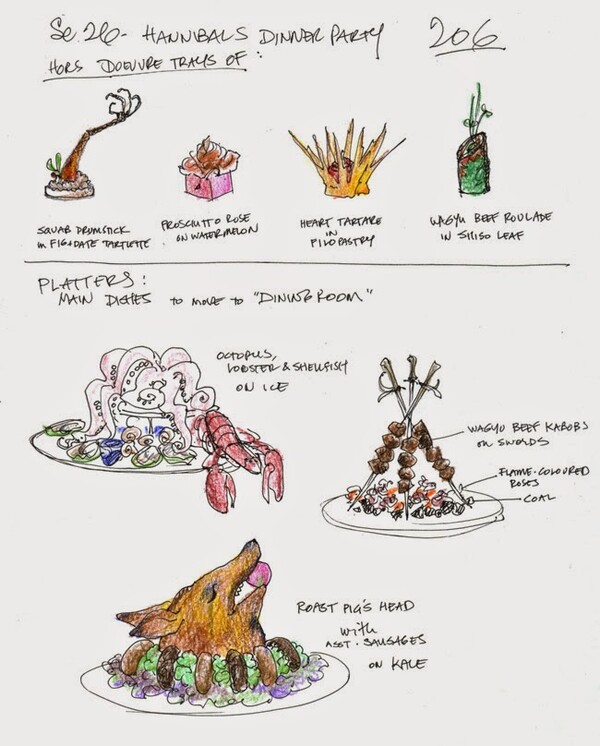 Sc. 26 - HANNIBALS DINNER PARTY 206
HORS DOEUVRE TRAYS OF :
SQUAB DRUMSTICK
in FIG & DATE TARTLETTE
PROSCIUTTO ROSE
ON WATERMELON
HEART TARTARE
IN
FILO PASTRY
WAGYU BEEF ROULADE
IN SHISO LEAF
PLATTERS :
MAIN DISHES to move to "DINING ROOM"
OCTOPUS,
LOBSTER & SHELLFISH
ON ICE
WAGYU BEEF KABOBS
on SWORDS
FLAME-COLOURED
ROSES
COAL
ROAST PIG'S HEAD
with
ASST. SAUSAGES
ON KALE